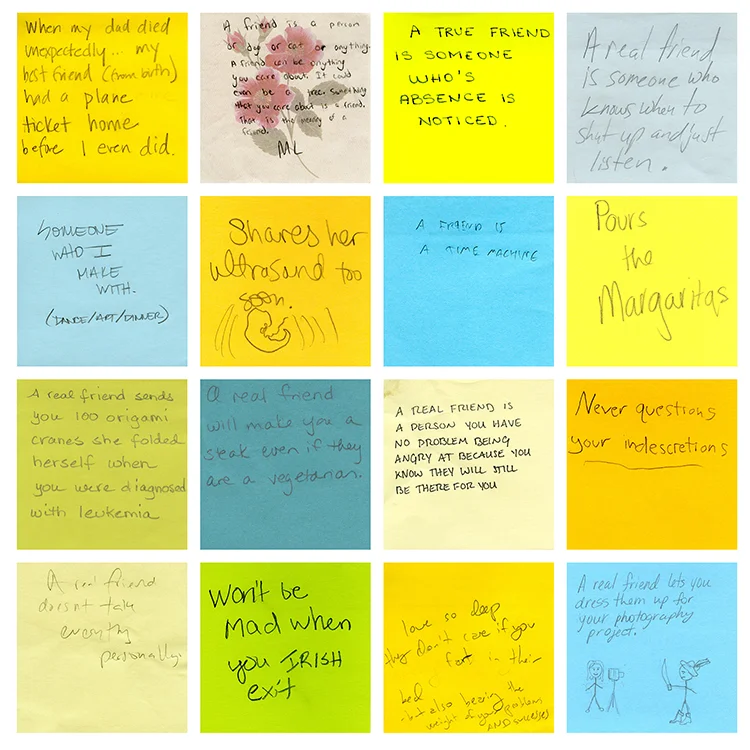 When my dad died
unexpectedly... my
best friend (from birth)
had a plane
ticket home
before I even did.
A friend is a person
or dog or cat or anything.
A friend can be anything
you care about. It could
even be a tree. Something
that you care about is a friend.
That is the meaning of a
friend.
ML
A TRUE FRIEND
IS SOMEONE
WHO'S
ABSENCE IS
NOTICED.
A real friend
is someone who
knows when to
shut up and just
listen.
SOMEONE
WHO I
MAKE
WITH.
(DANCE/ART/DINNER)
Shares her
ultrasound too
soon.
A FRIEND IS
A TIME MACHINE
Pours
the
Margaritas
A real friend sends
you 100 origami
cranes she folded
herself when
you were diagnosed
with leukemia
A real friend
will make you a
steak even if they
are a vegetarian.
A REAL FRIEND IS
A PERSON YOU HAVE
NO PROBLEM BEING
ANGRY AT BECAUSE YOU
KNOW THEY WILL STILL
BE THERE FOR YOU
Never questions
your indescretions
A real friend
doesn't take
everything
personally.
Won't be
Mad when
you IRISH
exit
love so deep
they don't care if you
fart in their
bed
but also bearing the
weight of your problems
AND SUCCESSES
A real friend lets you
dress them up for
your photography
project.